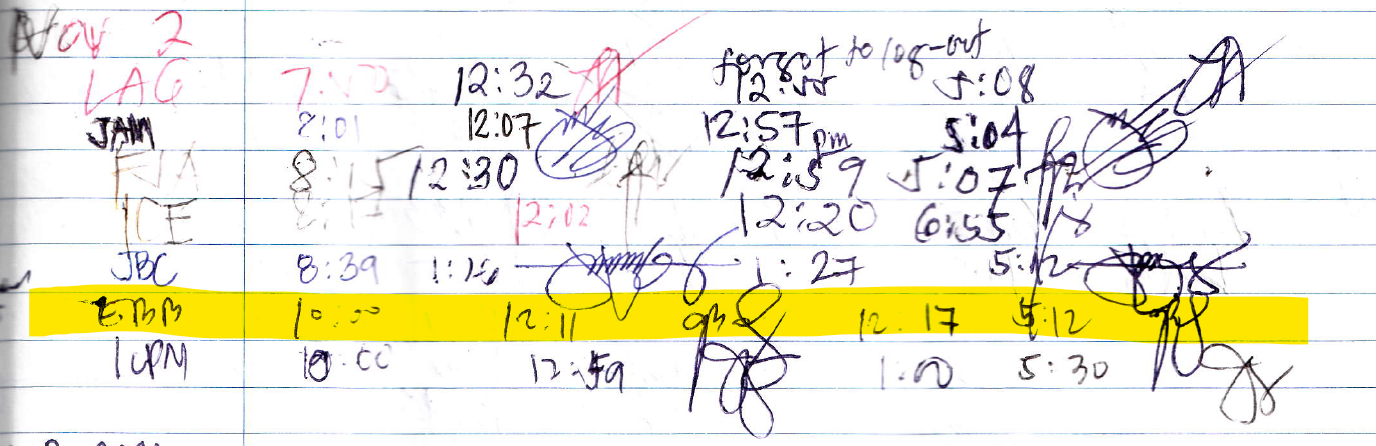 Nov 2
forgot to log-out
LAG 12:32 12:55 5:08
JAM 8:01 12:07 12:57 pm 5:04
FJA 8:15 12:30 12:59 5:07
ICE 12:02 12:20 6:55
JBC 8:39 1:27 5:12
EBB 10:00 12:11 12:17 5:12
10:00 12:59 1:00 5:30